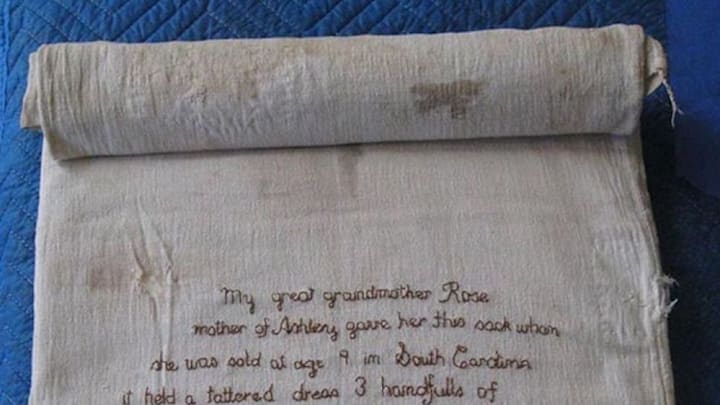 My great grandmother Rose
mother of Ashley gave her this sack when
she was sold at age 9 in South Carolina
it held a tattered dress 3 handfulls of